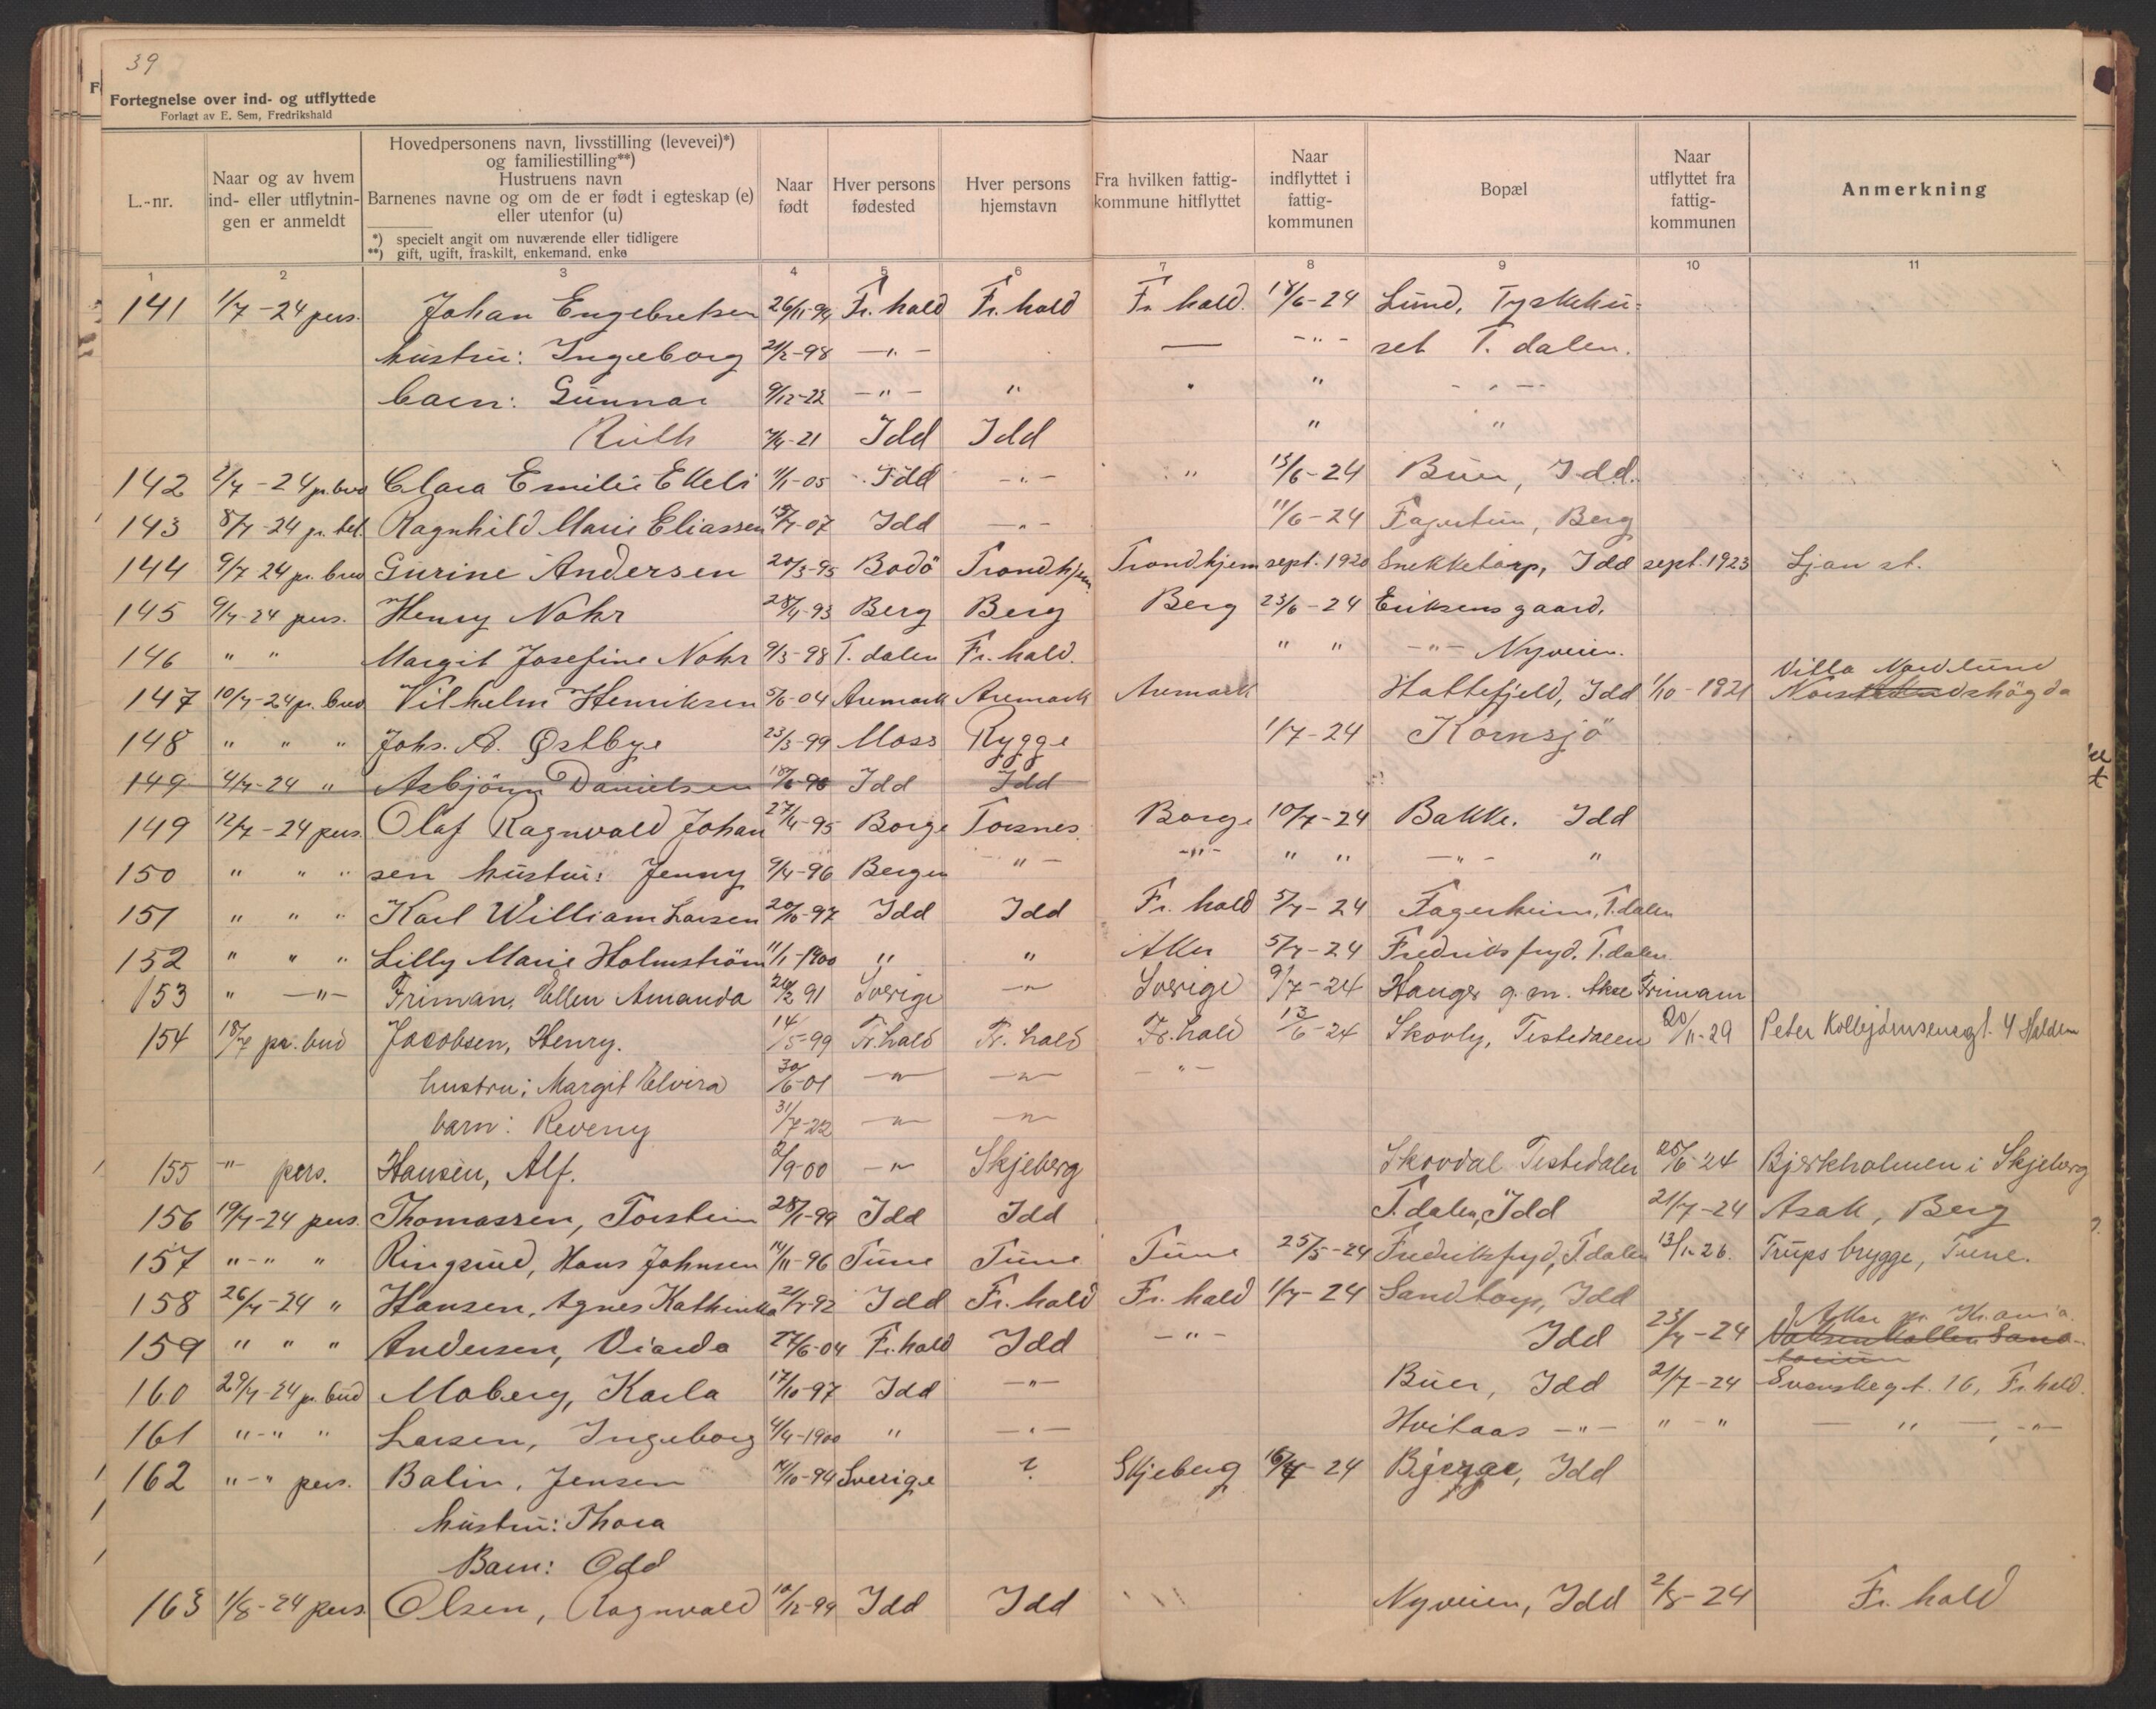 39
Fortegnelse over ind- og utflyttede
Forlagt av E. Sem, Fredrikshald
L.-nr.
Naar og av hvem
ind- eller utflytnin-
gen er anmeldt
Hovedpersonens navn, livsstilling (levevei)*)
og familiestilling**)
Hustruens navn
Barnenes navne og om de er født i egteskap (e)
eller utenfor (u)
*) specielt angit om nuværende eller tidligere
**) gift, ugift, fraskilt, enkemand, enke
Naar
født
Hver persons
fødested
Hver persons
hjemstavn
Fra hvilken fattig-
kommune hitflyttet
Naar
indflyttet i
fattig-
kommunen
Bopæl
Naar
utflyttet fra
fattig-
kommunen
Anmerkning
1 2 3 4 5 6 7 8 9 10 11
141 1/7-24 pers. Johan Engebretsen 26/11-94 Fr. hald Fr. hald Fr. hald. 18/6-24 Lund, Tyskehu-
hustru: Ingeborg 21/2-98 -"- — -"- set T. dalen.
barn: Gunnar 9/12-22 -"- " " " -"-
Ruth 7/4-21 Idd Idd " "
142 2/7-24 pr. bud Clara Emilie Elleli 1/1-05 Idd -"- " 13/6-24 Buer, Idd.
143 8/7-24 pr. tel. Ragnhild Marie Eliassen 15/7-07 Idd -"- 11/6-24 Fagertun, Berg
144 9/7 24 pr. bud Gurine Andersen 20/3-95 Bodö Trondhjem Trondhjem sept. 1920 Snekketorp, Idd sept. 1923 Ljan st.
145 9/7-24 pers. Henry Nohr 28/4-93 Berg Berg Berg 23/6-24 Eriksens gaard,
146 " " Margit Josefine Nohr 9/3-98 T. dalen Fr. hald. " " -"- Nyveien.
Villa Nordlund
147 10/7-24 pr. bud Vilhelm Henriksen 5/6-04 Aremark Aremark Aremark Hattefjeld, Idd 1/10-1921 Norstrandshögda
148 " " " Johs. A. Østbye 23/3-99 Moss Rygge 1/7-24 Kornsjö
149 4/7-24 " Asbjörn Danielsen 18/6-96 Idd Idd
149 12/7-24 pers. Olaf Ragnvald Johan 27/4-95 Borge Torsnes Borge 10/7-24 Bakke. Idd
150 " " " sen hustru: Jenny 9/4-96 Bergen -"- -"- " " -"- "
151 " " " Karl William Larsen 20/10-97 Idd Idd Fr. hald 5/7-24 Fagerheim, T.dalen
152 " " " Lilly Marie Holmström 11/1-1900 " " Aker 5/7-24 Fredriksfryd. T.dalen
153 " -"- Friman, Ellen Amanda 24/2 91 Sverige -"- Sverige 9/7-24 Hauger g. m. Aksel Frimam
154 18/7 pr. bud Jacobsen, Henry. 14/5-99 Fr. hald Fr. hald Fr. hald 13/6-24 Skovly, Tistedalen 20/11-29 Peter Kolbjørnsensgt. 4 Halden
hustru: Margit Elvira 30/6-01 -"- -"- -"-
barn: Reveny 31/7-22 -"- -"-
155 -"- pers. Hansen, Alf. 2/9-00 -"- Skjeberg Skovdal Tistedalen 25/6-24 Bjerkholmen i Skjeberg
156 19/7-24 pers. Thomassen, Torstein 28/1-99 Idd Idd T.dalen, Idd 21/7-24 Asak, Berg
157 "-" " Ringsrud, Hans Johnsen 14/11-96 Tune Tune Tune 25/5-24 Fredriksfryd, T.dalen 13/1-26. Trups brygge, Tune.
158 26/7-24 " Hansen, Agnes Kathinka 21/7-92 Idd Fr. hald Fr. hald 1/7-24 Sandtorp, Idd
Aker pr. Kr.ania.
159 " " " Andersen, Viarda 27/6-04 Fr. hald Idd -"- Idd 23/7-24 Voksenkollen Sana-
torium
160 29/7-24 pr. bud Moberg, Karla 17/10-97 Idd -"- Buer, Idd 21/7-24 Svenskegt. 16, Fr. hald.
161 "-" " Larsen, Ingeborg 4/4-1900 " -"- Hvitaas -"- "-" — " — -"-
162 "-" pers. Balin, Jensen 7/10-94 Sverige ? Skjeberg 16/7-24 Bjerger, Idd
hustru: Thora
Barn: Odd
163 1/8-24 pers. Olsen, Ragnvald 10/12-94 Idd Idd Nyveien, Idd 2/8-24 Fr. hald